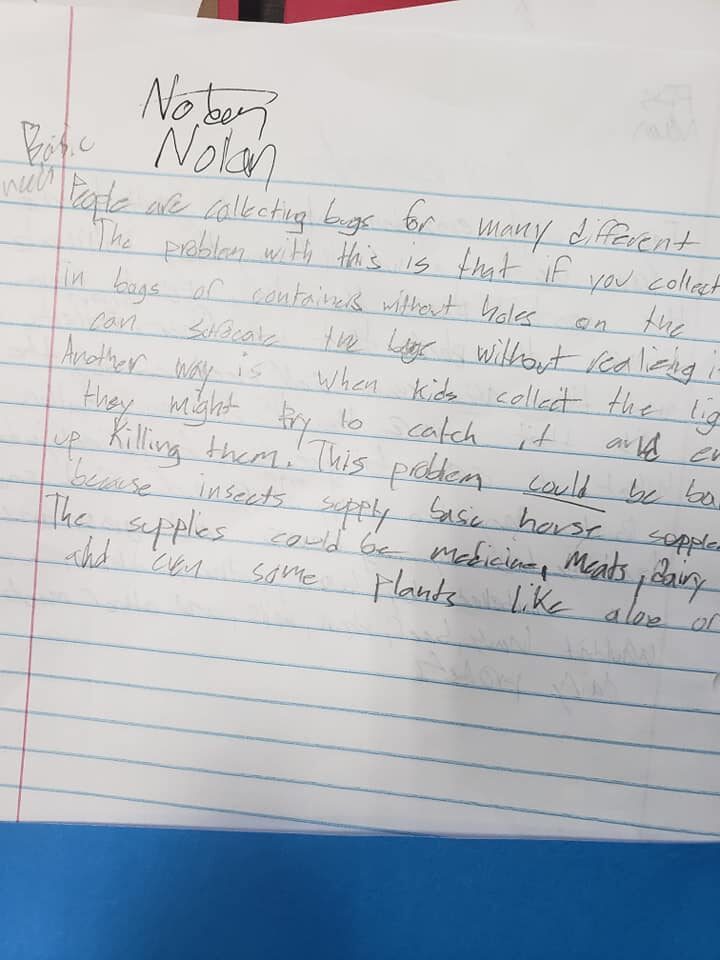 Nolan
Basic
People are collecting bugs for many different
The problem with this is that if you collect
in bags or containers without holes on the
can sufocate the bugs without realizing
Another way is when kids collect the
they might try to catch it and
up killing them. This problem could be
because insects supply basic horse
The supplies could be medicine, meats, dairy
and even some plants like aloe or